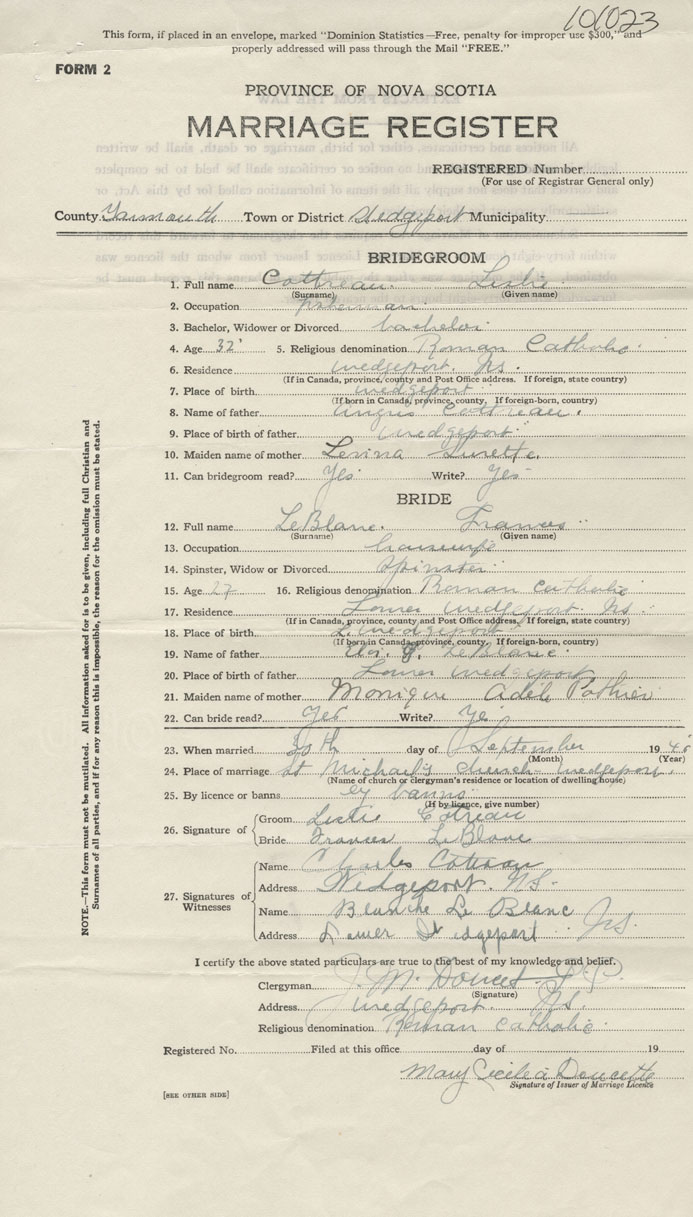 101023
This form, if placed in an envelope, marked "Dominion Statistics—Free, penalty for improper use $300," and
properly addressed will pass through the Mail "FREE."
FORM 2
PROVINCE OF NOVA SCOTIA
MARRIAGE REGISTER
REGISTERED Number
(For use of Registrar General only)
County Yarmouth Town or District Wedgeport Municipality
BRIDEGROOM
1. Full name Cottreau Leslie
(Surname) (Given name)
2. Occupation fisherman
3. Bachelor, Widower or Divorced bachelor
4. Age 32 5. Religious denomination Roman Catholic
6. Residence Wedgeport. Ns.
(If in Canada, province, county and Post Office address. If foreign, state country)
7. Place of birth Wedgeport
(If born in Canada, province, county, If foreign-born, country)
8. Name of father Angus Cottreau.
9. Place of birth of father Wedgeport
10. Maiden name of mother Levina Surette.
11. Can bridegroom read? Yes Write? Yes
BRIDE
12. Full name LeBlanc. Frances
(Surname) (Given name)
13. Occupation housewife
14. Spinster, Widow or Divorced Spinster
15. Age 27 16. Religious denomination Roman Catholic
17. Residence Lower Wedgeport. Ns.
(If in Canada, province, county and Post Office address. If foreign, state country)
18. Place of birth L. Wedgeport
(If born in Canada, province, county, If foreign-born, country)
19. Name of father LeBlanc.
20. Place of birth of father Lower Wedgeport
21. Maiden name of mother Monique Adele Pothier
22. Can bride read? Yes Write? Ye
23. When married 30th day of September 1945
(Month) (Year)
24. Place of marriage St Michael's Church Wedgeport.
(Name of church or clergyman's residence or location of dwelling house)
25. By licence or banns by banns
(If by licence, give number)
26. Signature of
Groom Leslie Cotreau
Bride Frances LeBlanc
27. Signatures of Witnesses
Name Charles Cottreau
Address Wedgeport. NS-
Name Blanche Le Blanc
Address Lower Wedgeport N.S.
I certify the above stated particulars are true to the best of my knowledge and belief.
Clergyman J. M. Doucet P.P.
(Signature)
Address Wedgeport. Ns
Religious denomination Roman Catholic
Registered No. Filed at this office day of 19
Mary Cecilia Doucette
Signature of Issuer of Marriage Licence
[SEE OTHER SIDE]
NOTE.—This form must not be mutilated. All information asked for is to be given, including full Christian and
Surnames of all parties, and if for any reason this is impossible, the reason for the omission must be stated.